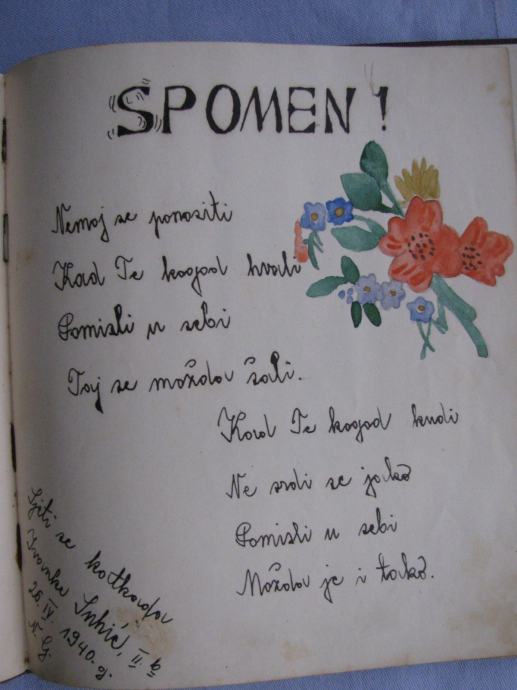 SPOMEN!
Nemoj se ponositi
Kad Te kogod hvali
Pomisli u sebi
Taj se možda šali.
Kad Te kogod kudi
Ne srdi se jako
Pomisli u sebi
Možda je i tako.
Sjeti se katkada
II b
26. IV. 1940. g.